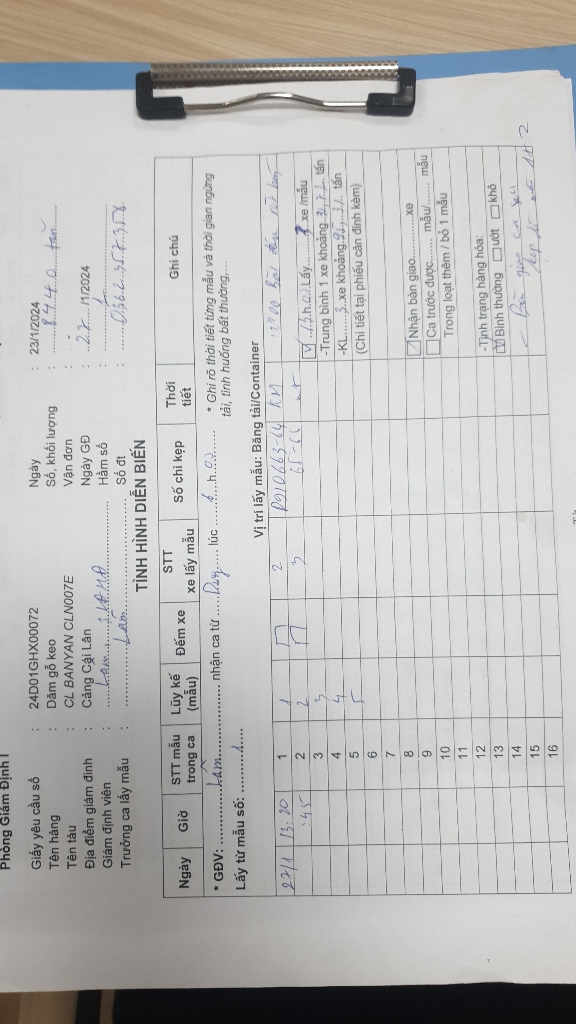 Phòng Giám Định I
Giấy yêu cầu số : 24D01GHX00072 Ngày : 23/1/2024
Tên hàng : Dăm gỗ keo Số, khối lượng : 8440 tấn
Tên tàu : CL BANYAN CLN007E Vận đơn :
Địa điểm giám định : Cảng Cái Lân Ngày GĐ : 22/1/2024
Giám định viên : Lâm Hầm số : 1
Trưởng ca lấy mẫu : Lâm Số đt : 0362.957.958
TÌNH HÌNH DIỄN BIẾN
Ngày Giờ STT mẫu trong ca Lũy kế (mẫu) Đếm xe STT xe lấy mẫu Số chì kẹp Thời tiết Ghi chú
* GĐV: Lâm nhận ca từ Duy lúc h * Ghi rõ thời tiết từng mẫu và thời gian ngừng tải, tình huống bất thường,....
Lấy từ mẫu số: 1
Vị trí lấy mẫu: Băng tải/Container
22/1 13:20 1 1 2 0910663-64
:45 2 2 3 65-66 h Lấy xe /mẫu
3 3 -Trung bình 1 xe khoảng tấn
4 4 -KL 3 xe khoảng tấn
5 5 (Chi tiết tại phiếu cân đính kèm)
6
7
8 Nhận bàn giao xe
9 Ca trước được mẫu/ mẫu
10 Trong loạt thêm / bỏ 1 mẫu
11
12 -Tình trạng hàng hóa:
13 Bình thường ướt khô
14 - Bàn giao ca sau
15
16